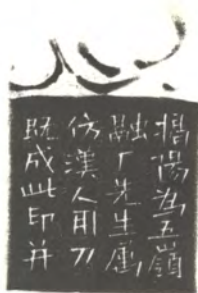 揭陽為五嶺
融厂先生属
仿漢人用刀
既成此印并